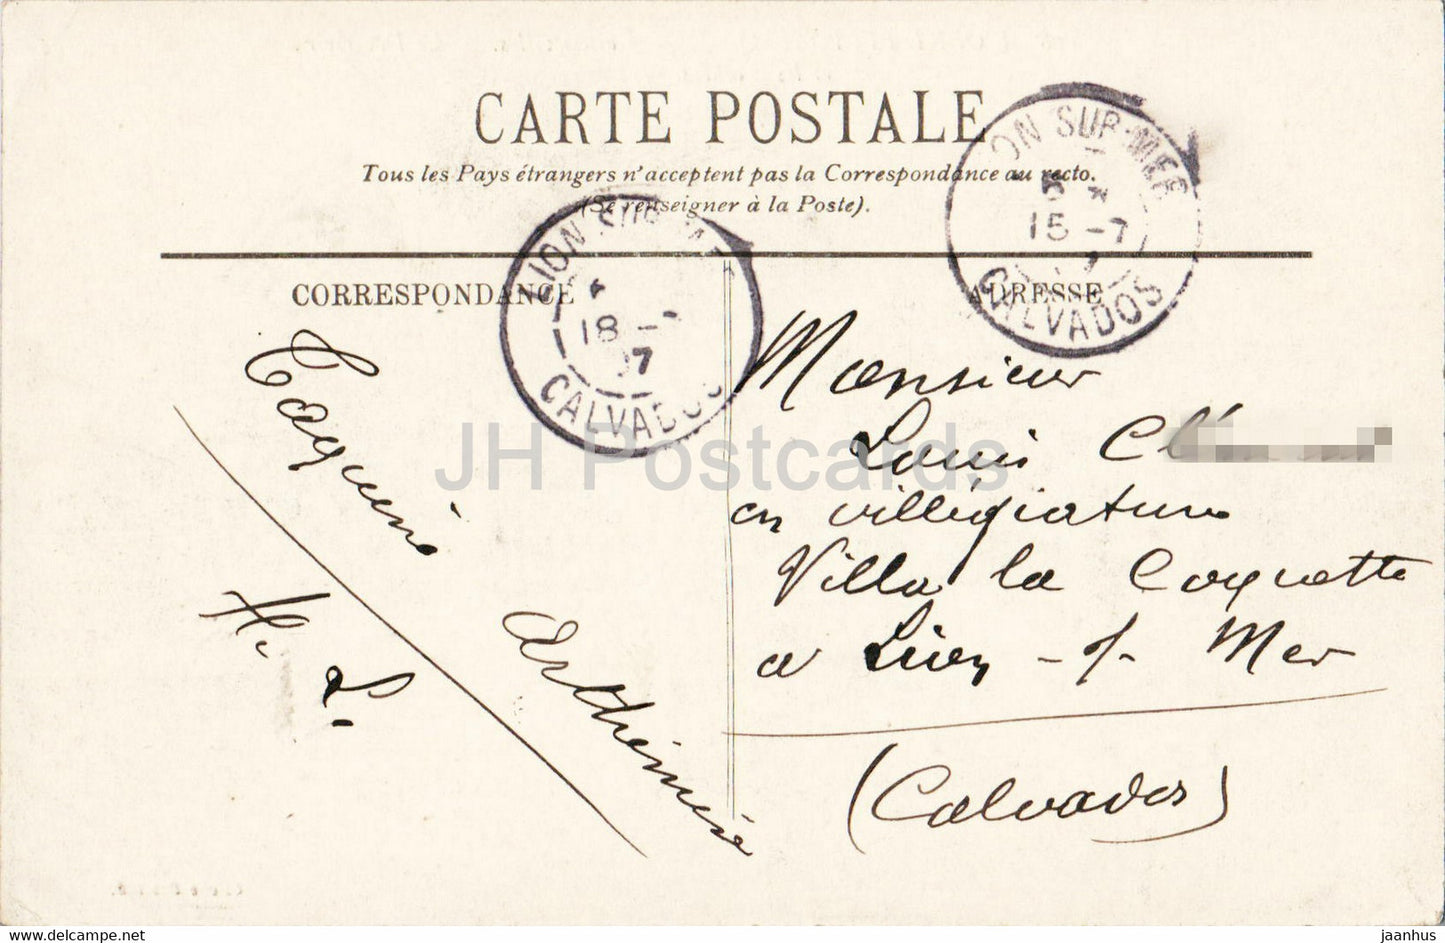 CARTE POSTALE
Tous les Pays étrangers n'acceptent pas la Correspondance au recto.
(Se renseigner à la Poste).
ION SUR-MER
15 -7
CALVADOS
LION SUR MER
18 -
07
CALVADOS
CORRESPONDANCE
ADRESSE
Monsieur
Louis Clé
en villégiature
Villa la Coquette
a Lion - s/- Mer
(Calvados)
H. L.
JH Postcards
www.delcampe.net
jaanhus